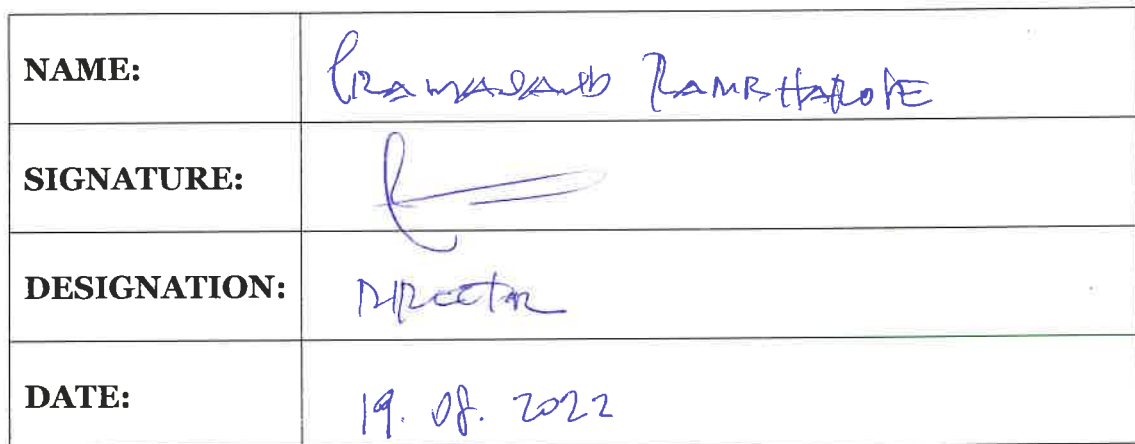 NAME: RAMBHAROSE
SIGNATURE:
DESIGNATION: Director
DATE: 19. 08. 2022